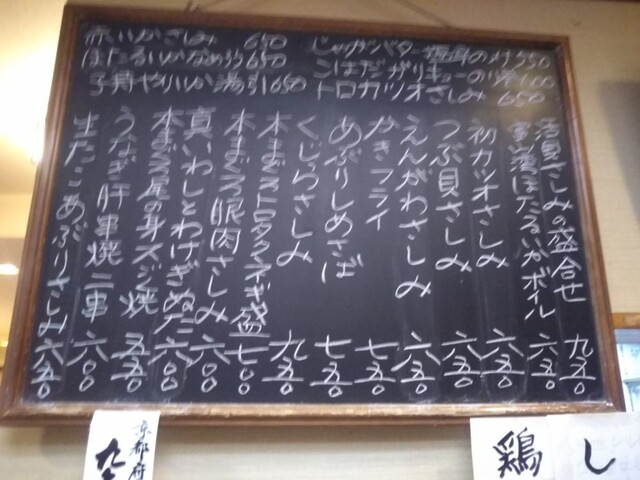 赤いかさしみ 650
ほたるいかなめろう650
子持やりいか湯引650
じゃがバター塩辛のせ550
こはだガリキューのり巻 600
トロカツオさしみ 650
活貝さしみの盛合せ 九五〇
富山湾ほたるいかボイル 六五〇
初カツオさしみ 六五〇
つぶ貝さしみ 六五〇
えんがわさしみ 六五〇
かきフライ 七五〇
あぶりしめさば 七五〇
くじらさしみ 九五〇
本まぐろトロタクネギ盛 七〇〇
本まぐろ眼肉さしみ 六〇〇
真いわしとわけぎぬた 六〇〇
本まぐろ尾の身スジ焼 五五〇
うなぎ肝串焼 二串 六〇〇
生たこあぶりさしみ 六五〇
京都府
鶏
し